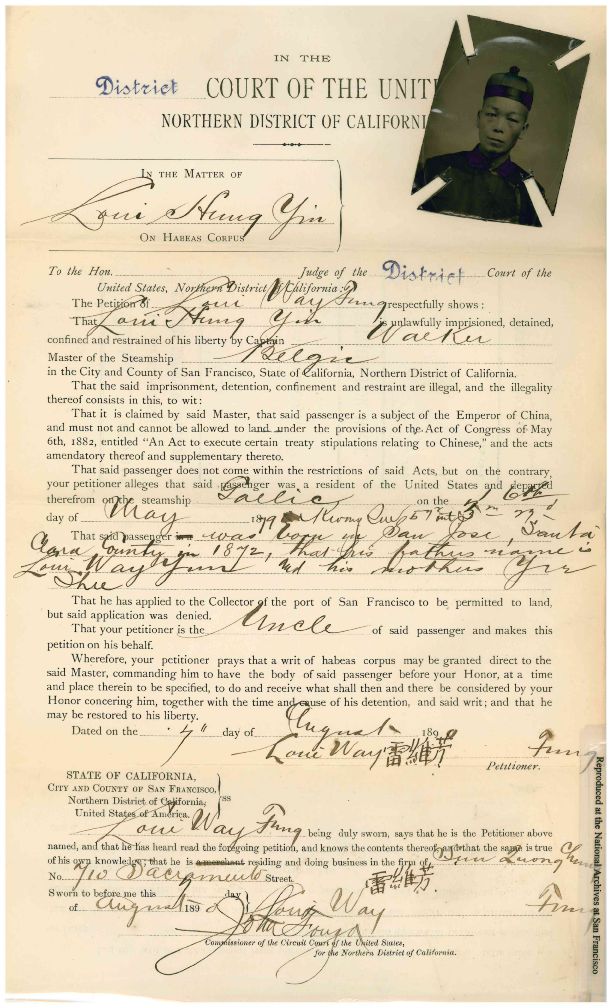 IN THE
District COURT OF THE UNIT
NORTHERN DISTRICT OF CALIFORNI
IN THE MATTER OF
Loui Hung Yin
ON HABEAS CORPUS
To the Hon. Judge of the District Court of the
United States, Northern District California:
The Petition of Loui Way Fung respectfully shows:
That Loui Hung Yin is unlawfully imprisioned, detained,
confined and restrained of his liberty by Captain Walker
Master of the Steamship Belgic
in the City and County of San Francisco, State of California, Northern District of California.
That the said imprisonment, detention, confinement and restraint are illegal, and the illegality
thereof consists in this, to wit:
That it is claimed by said Master, that said passenger is a subject of the Emperor of China,
and must not and cannot be allowed to land under the provisions of the Act of Congress of May
6th, 1882, entitled "An Act to execute certain treaty stipulations relating to Chinese," and the acts
amendatory thereof and supplementary thereto.
That said passenger does not come within the restrictions of said Acts, but on the contrary,
your petitioner alleges that said passenger was a resident of the United States and departed
therefrom on the steamship on the
day of May
That said passenger was born in San Jose, Santa
Clara County in 1872, that his fathers name is
Loui Way and his mothers Yee
Shee
That he has applied to the Collector of the port of San Francisco to be permitted to land,
but said application was denied.
That your petitioner is the Uncle of said passenger and makes this
petition on his behalf.
Wherefore, your petitioner prays that a writ of habeas corpus may be granted direct to the
said Master, commanding him to have the body of said passenger before your Honor, at a time
and place therein to be specified, to do and receive what shall then and there be considered by your
Honor concering him, together with the time and cause of his detention, and said writ; and that he
may be restored to his liberty.
Dated on the 7" day of August 189
Loui Way 雷維芳 Fung
Petitioner.
STATE OF CALIFORNIA,
CITY AND COUNTY OF SAN FRANCISCO,
Northern District of California,
United States of America.
ss
Loui Way Fung being duly sworn, says that he is the Petitioner above
named, and that he has heard read the foregoing petition, and knows the contents thereof and that the same is true
of his own knowledge; that he is a merchant residing and doing business in the firm of
No. 710 Sacramento Street.
雷維芳
Sworn to before me this day
of August 189 Loui Way Fung
John Fouga
Commissioner of the Circuit Court of the United States,
for the Northern District of California.
Reproduced at the National Archives at San Francisco